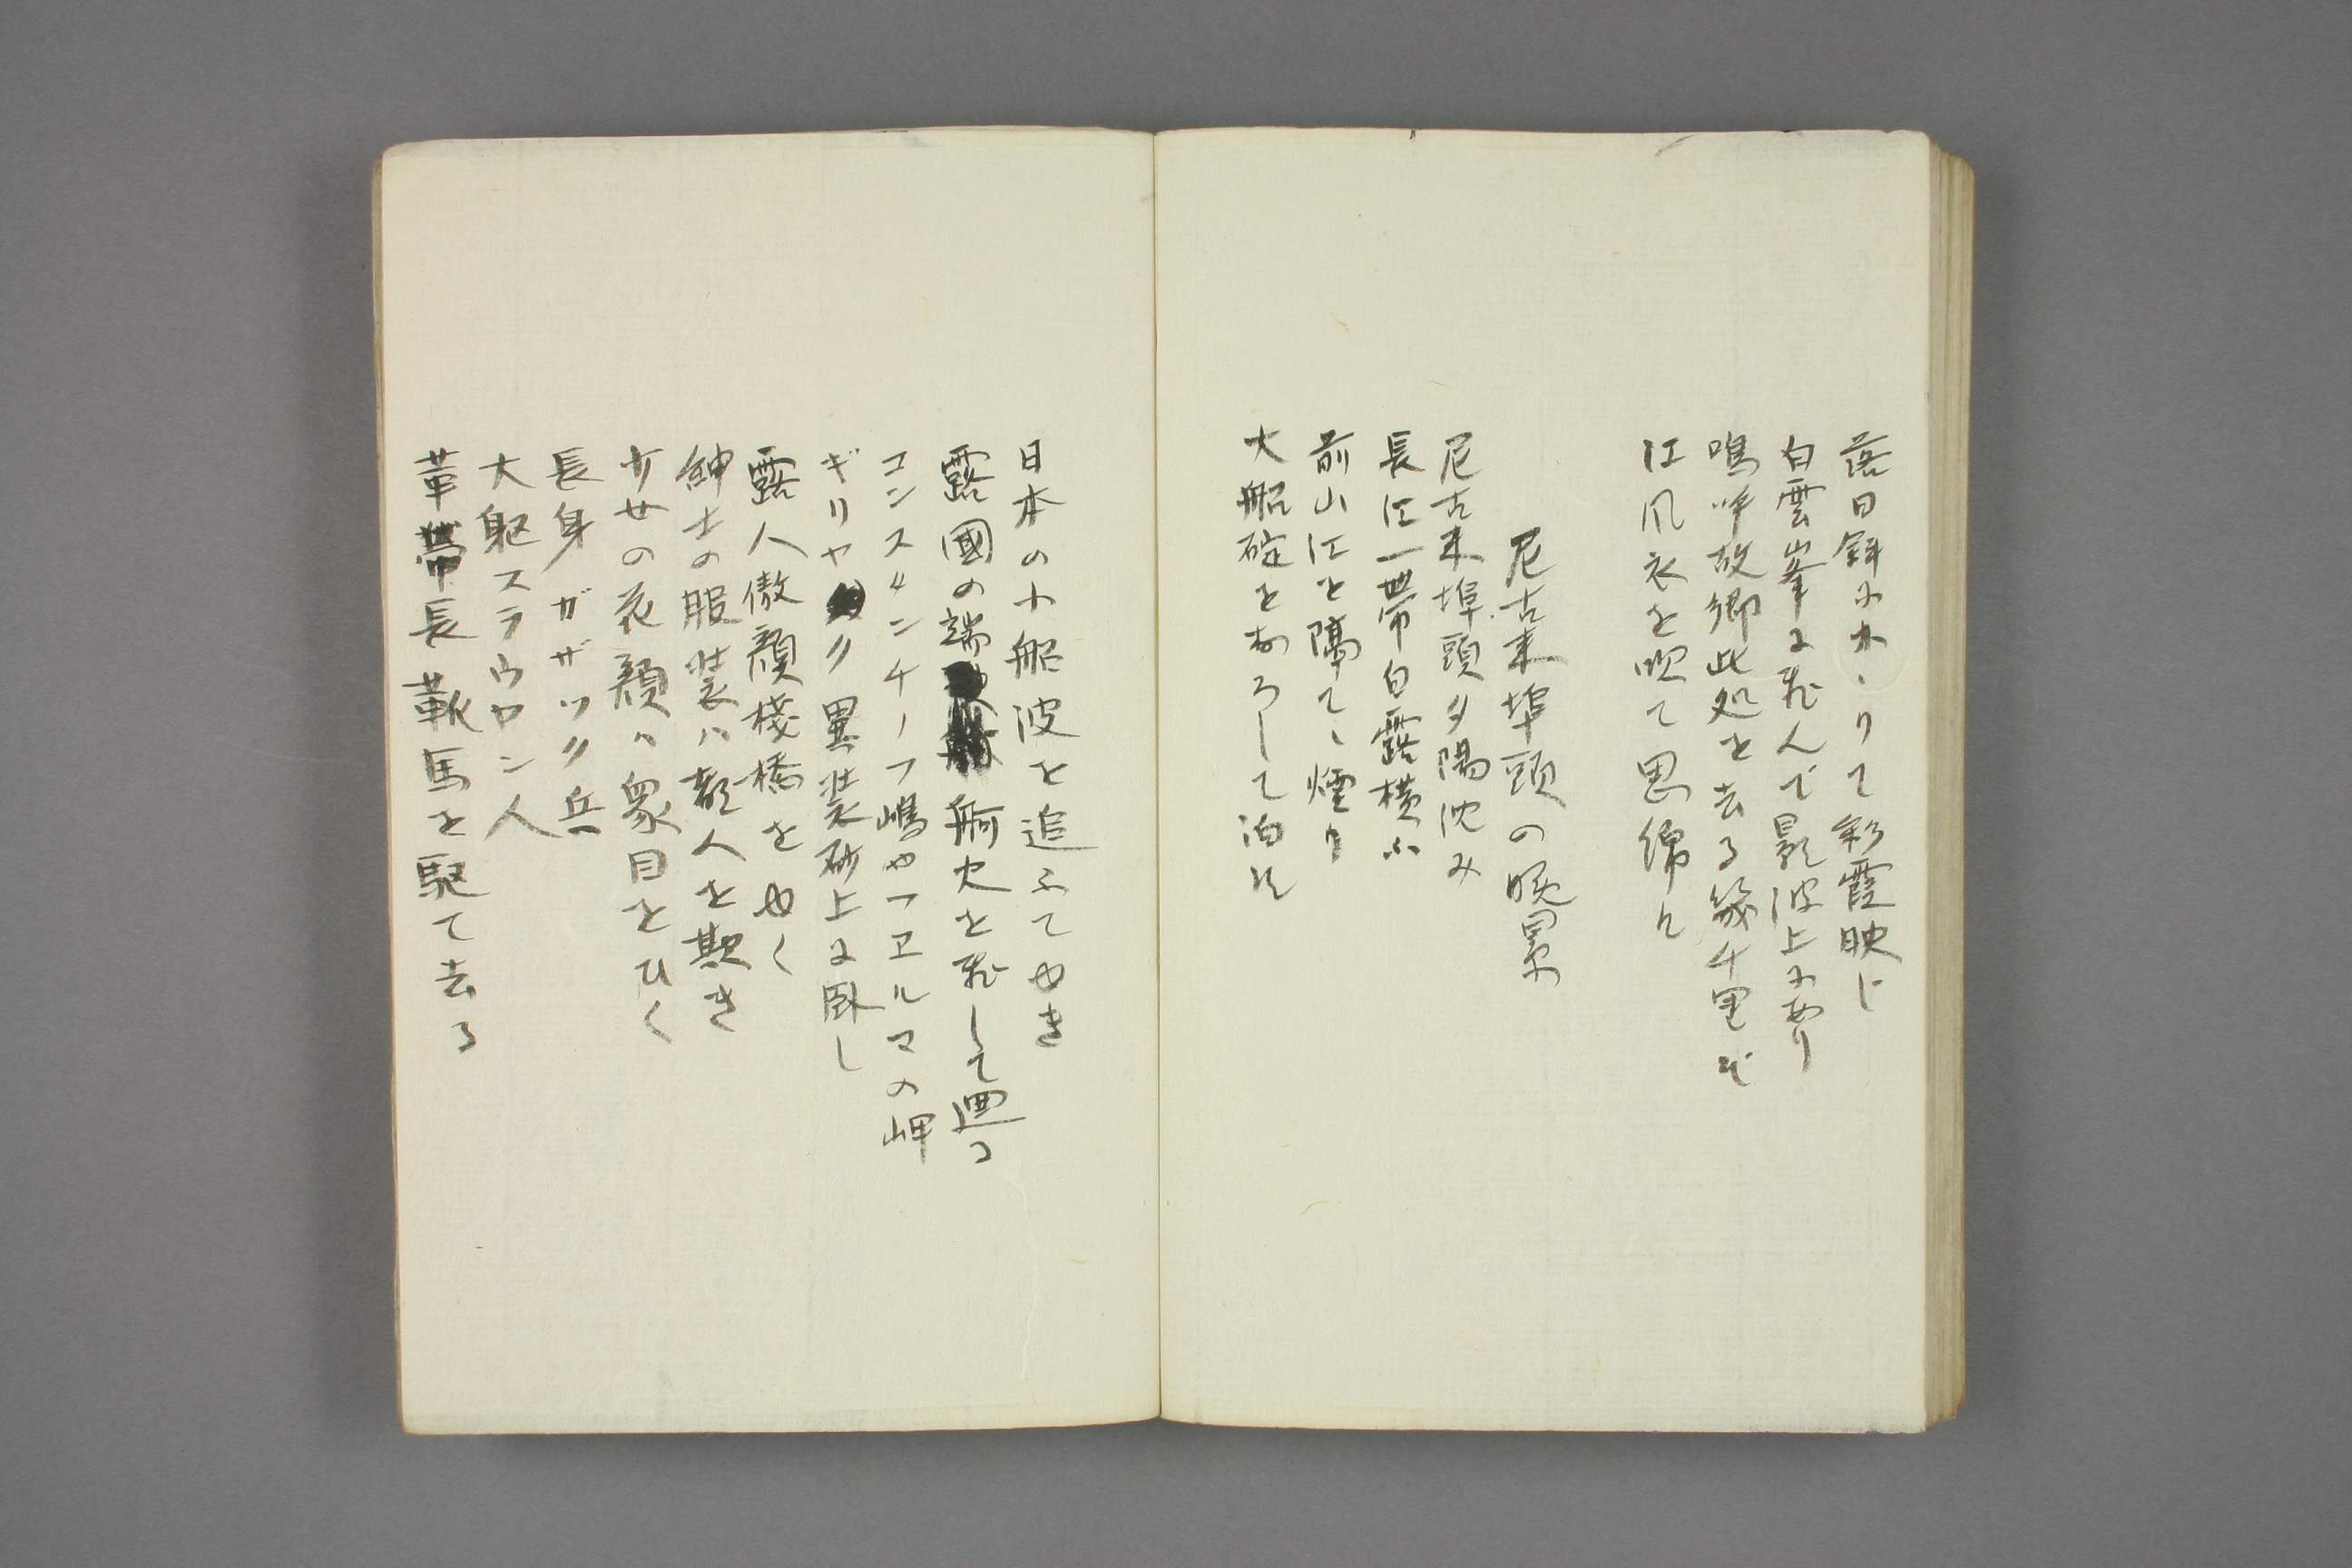 落日斜にかゝりて彩霞映じ
白雲峯に飛んで影波上にあり
嗚呼故郷此処を去る幾千里ぞ
江風衣を吹て思綿々
尼古来埠頭の晩景
尼古来埠頭夕陽沈み
長江一帯白露横ふ
前山江を隔てゝ煙り
大船碇をおろして泊す
日本の小船波を追ふてゆき
露國の端舸火を飛して廻る
コンスタンチーフ嶋やフヱルマの岬
ギリヤク異装砂上に臥し
露人傲顔棧橋をゆく
紳士の服装ハ都人を欺き
少女の花顔ハ衆目をひく
長身ガザック兵
大躯スラウヲン人
革帯長靴馬を駆て去る